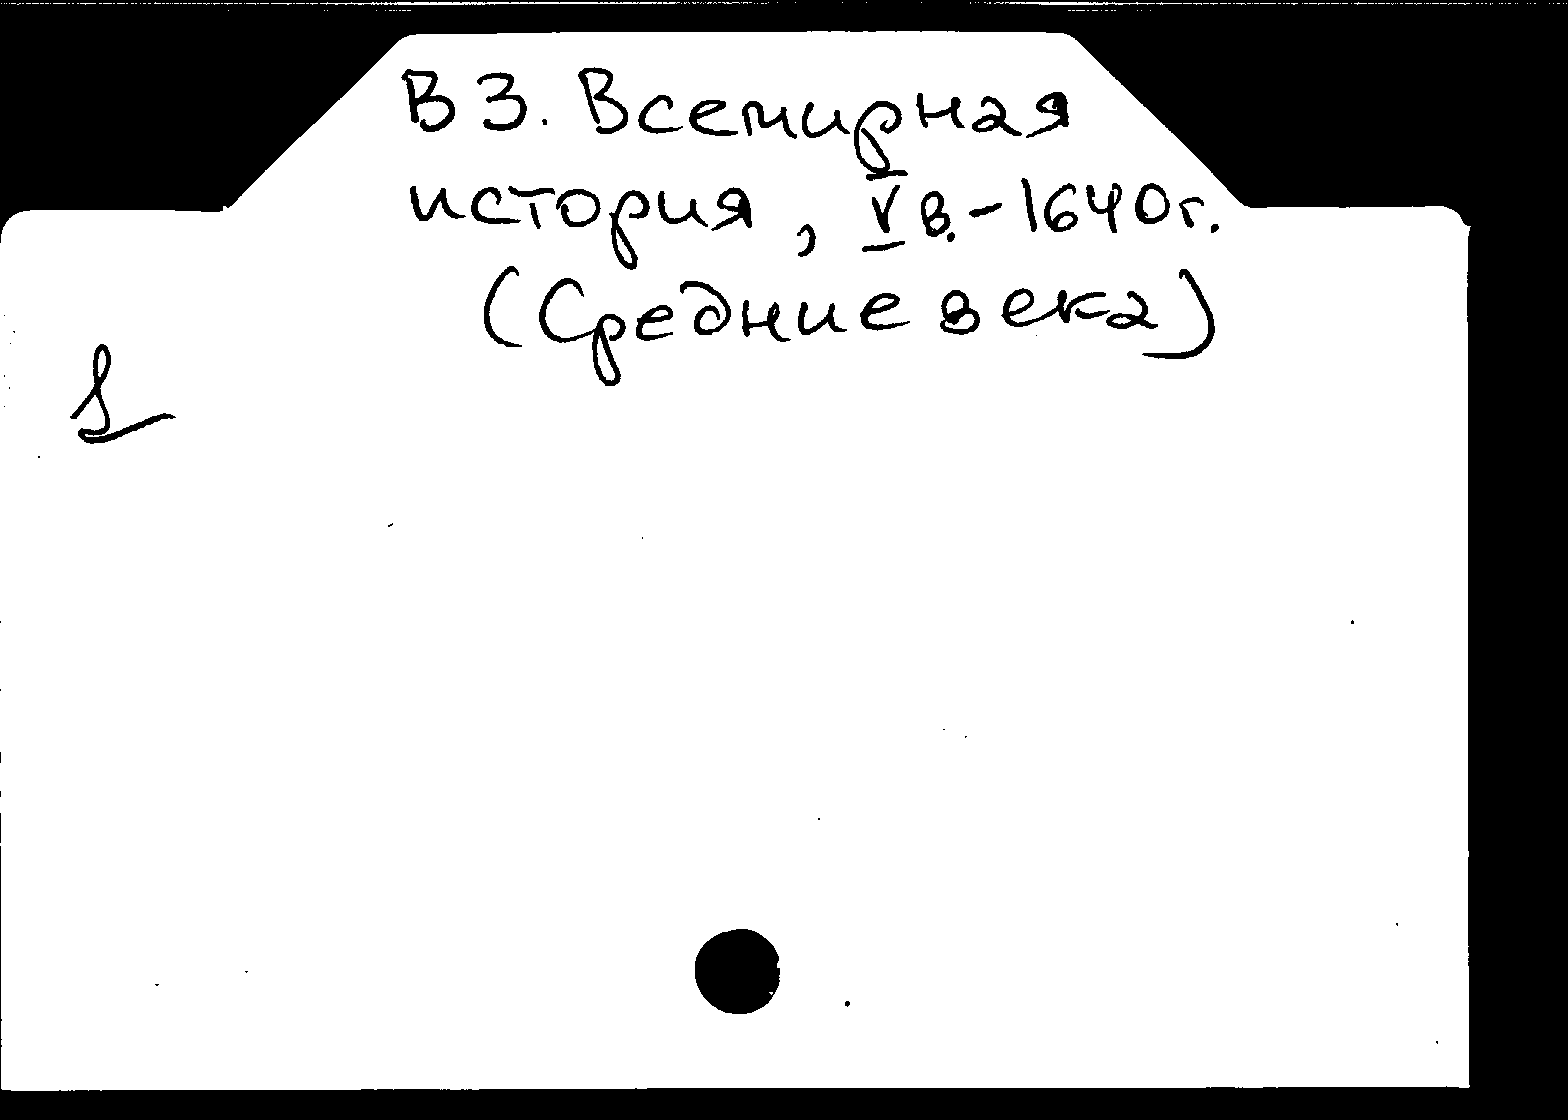 В 3. Всемирная
история, V в. - 1640 г.
(Средние века)